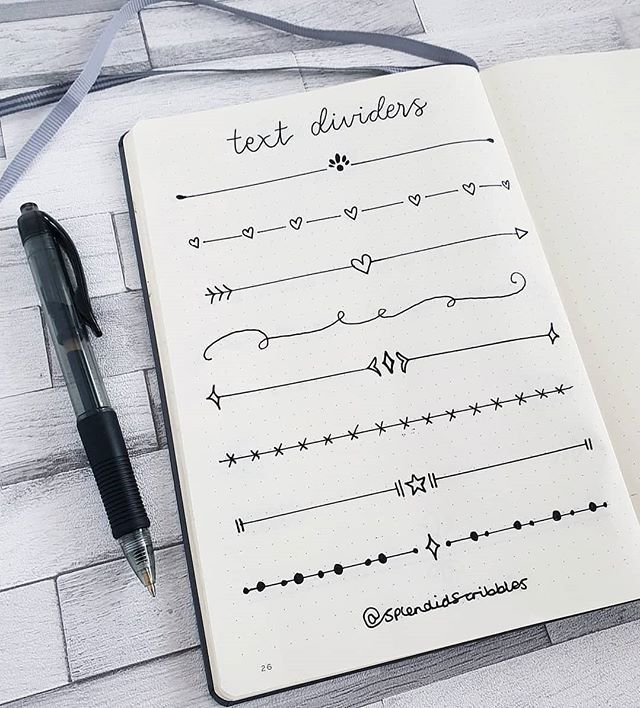 text dividers
@splendidscribbles
26